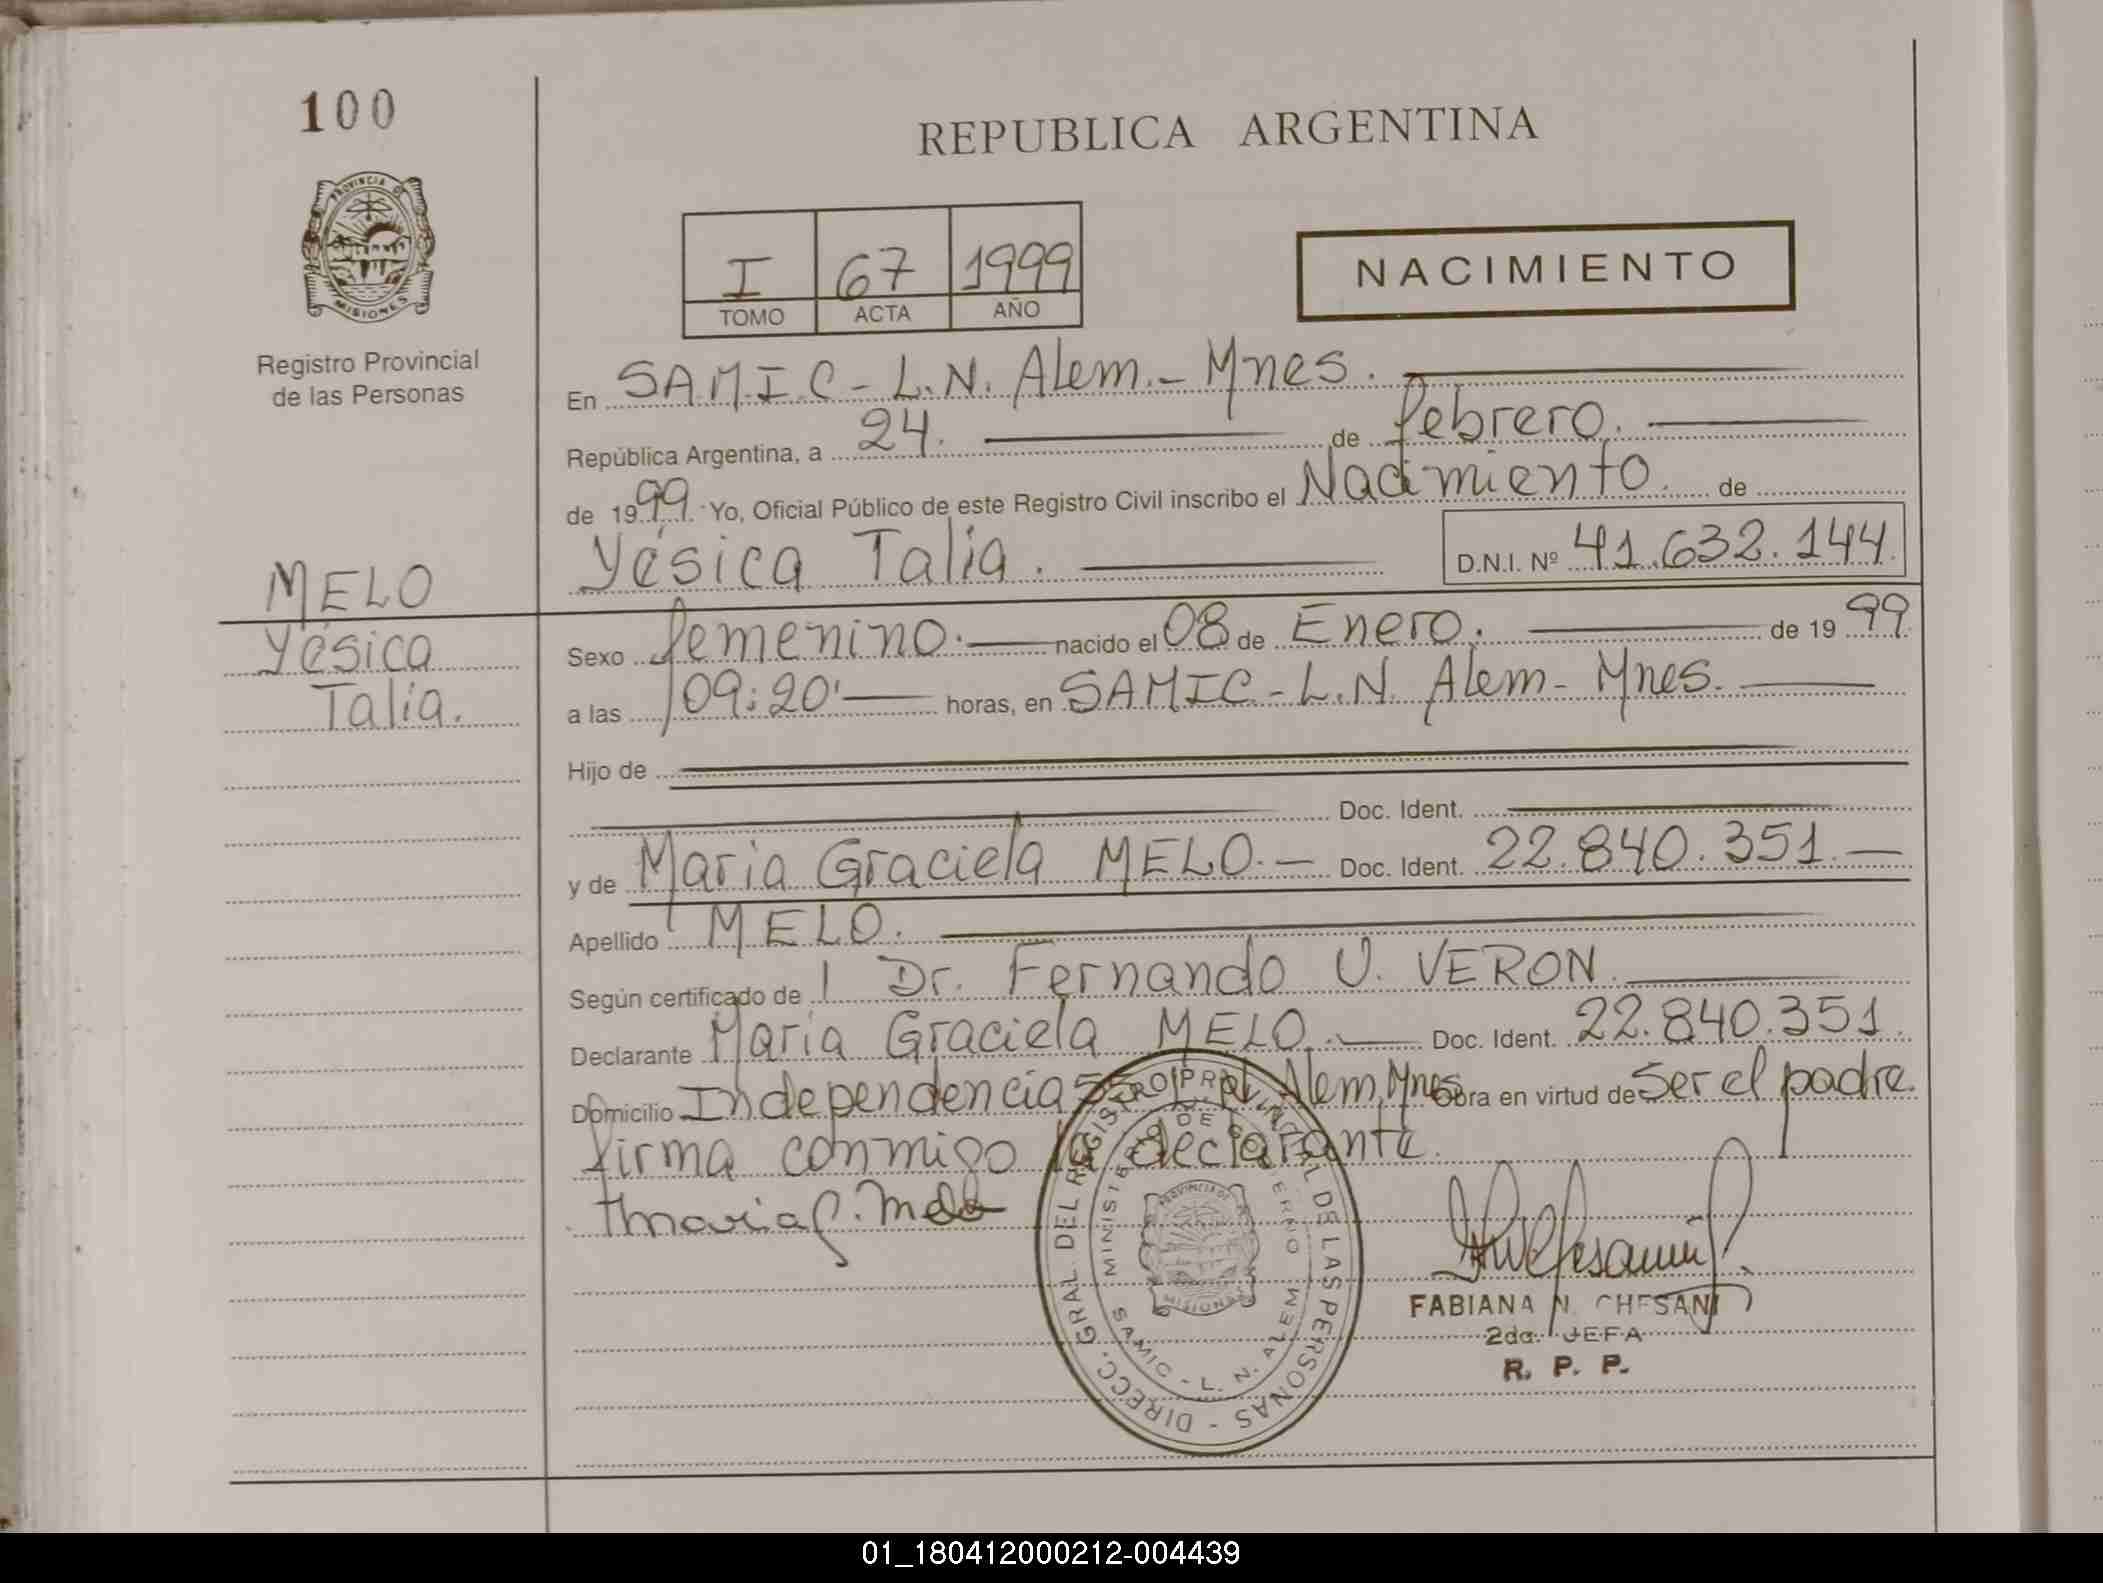 100
REPUBLICA ARGENTINA
PROVINCIA DE
MISIONES
Registro Provincial
de las Personas
I 67 1999
TOMO ACTA AÑO
NACIMIENTO
En SAMIC - L.N. Alem.- Mnes.
República Argentina, a 24. de febrero.
de 1999. Yo, Oficial Público de este Registro Civil inscribo el Nacimiento. de
Yésica Talia. D.N.I. Nº 41.632.144.
MELO
Yésica
Talia.
Sexo femenino. nacido el 08 de Enero. de 1999.
a las 09:20' horas, en SAMIC - L.N. Alem - Mnes.
Hijo de
Doc. Ident.
y de Maria Graciela MELO. Doc. Ident. 22.840.351.
Apellido MELO.
Según certificado de Dr. Fernando U. VERON.
Declarante Maria Graciela MELO. Doc. Ident. 22.840.351.
Domicilio Independencia Alem, Mnes Obra en virtud de ser el padre.
firma conmigo la declarante.
Maria G. Melo
DIRECC. GRAL. DEL REGISTRO PROVINCIAL DE LAS PERSONAS
MINISTERIO DE GOBIERNO
SAMIC - L. N. ALEM
PROVINCIA DE
MISIONES
FABIANA N. CHESANI
2da. JEFA
R. P. P.
01_180412000212-004439